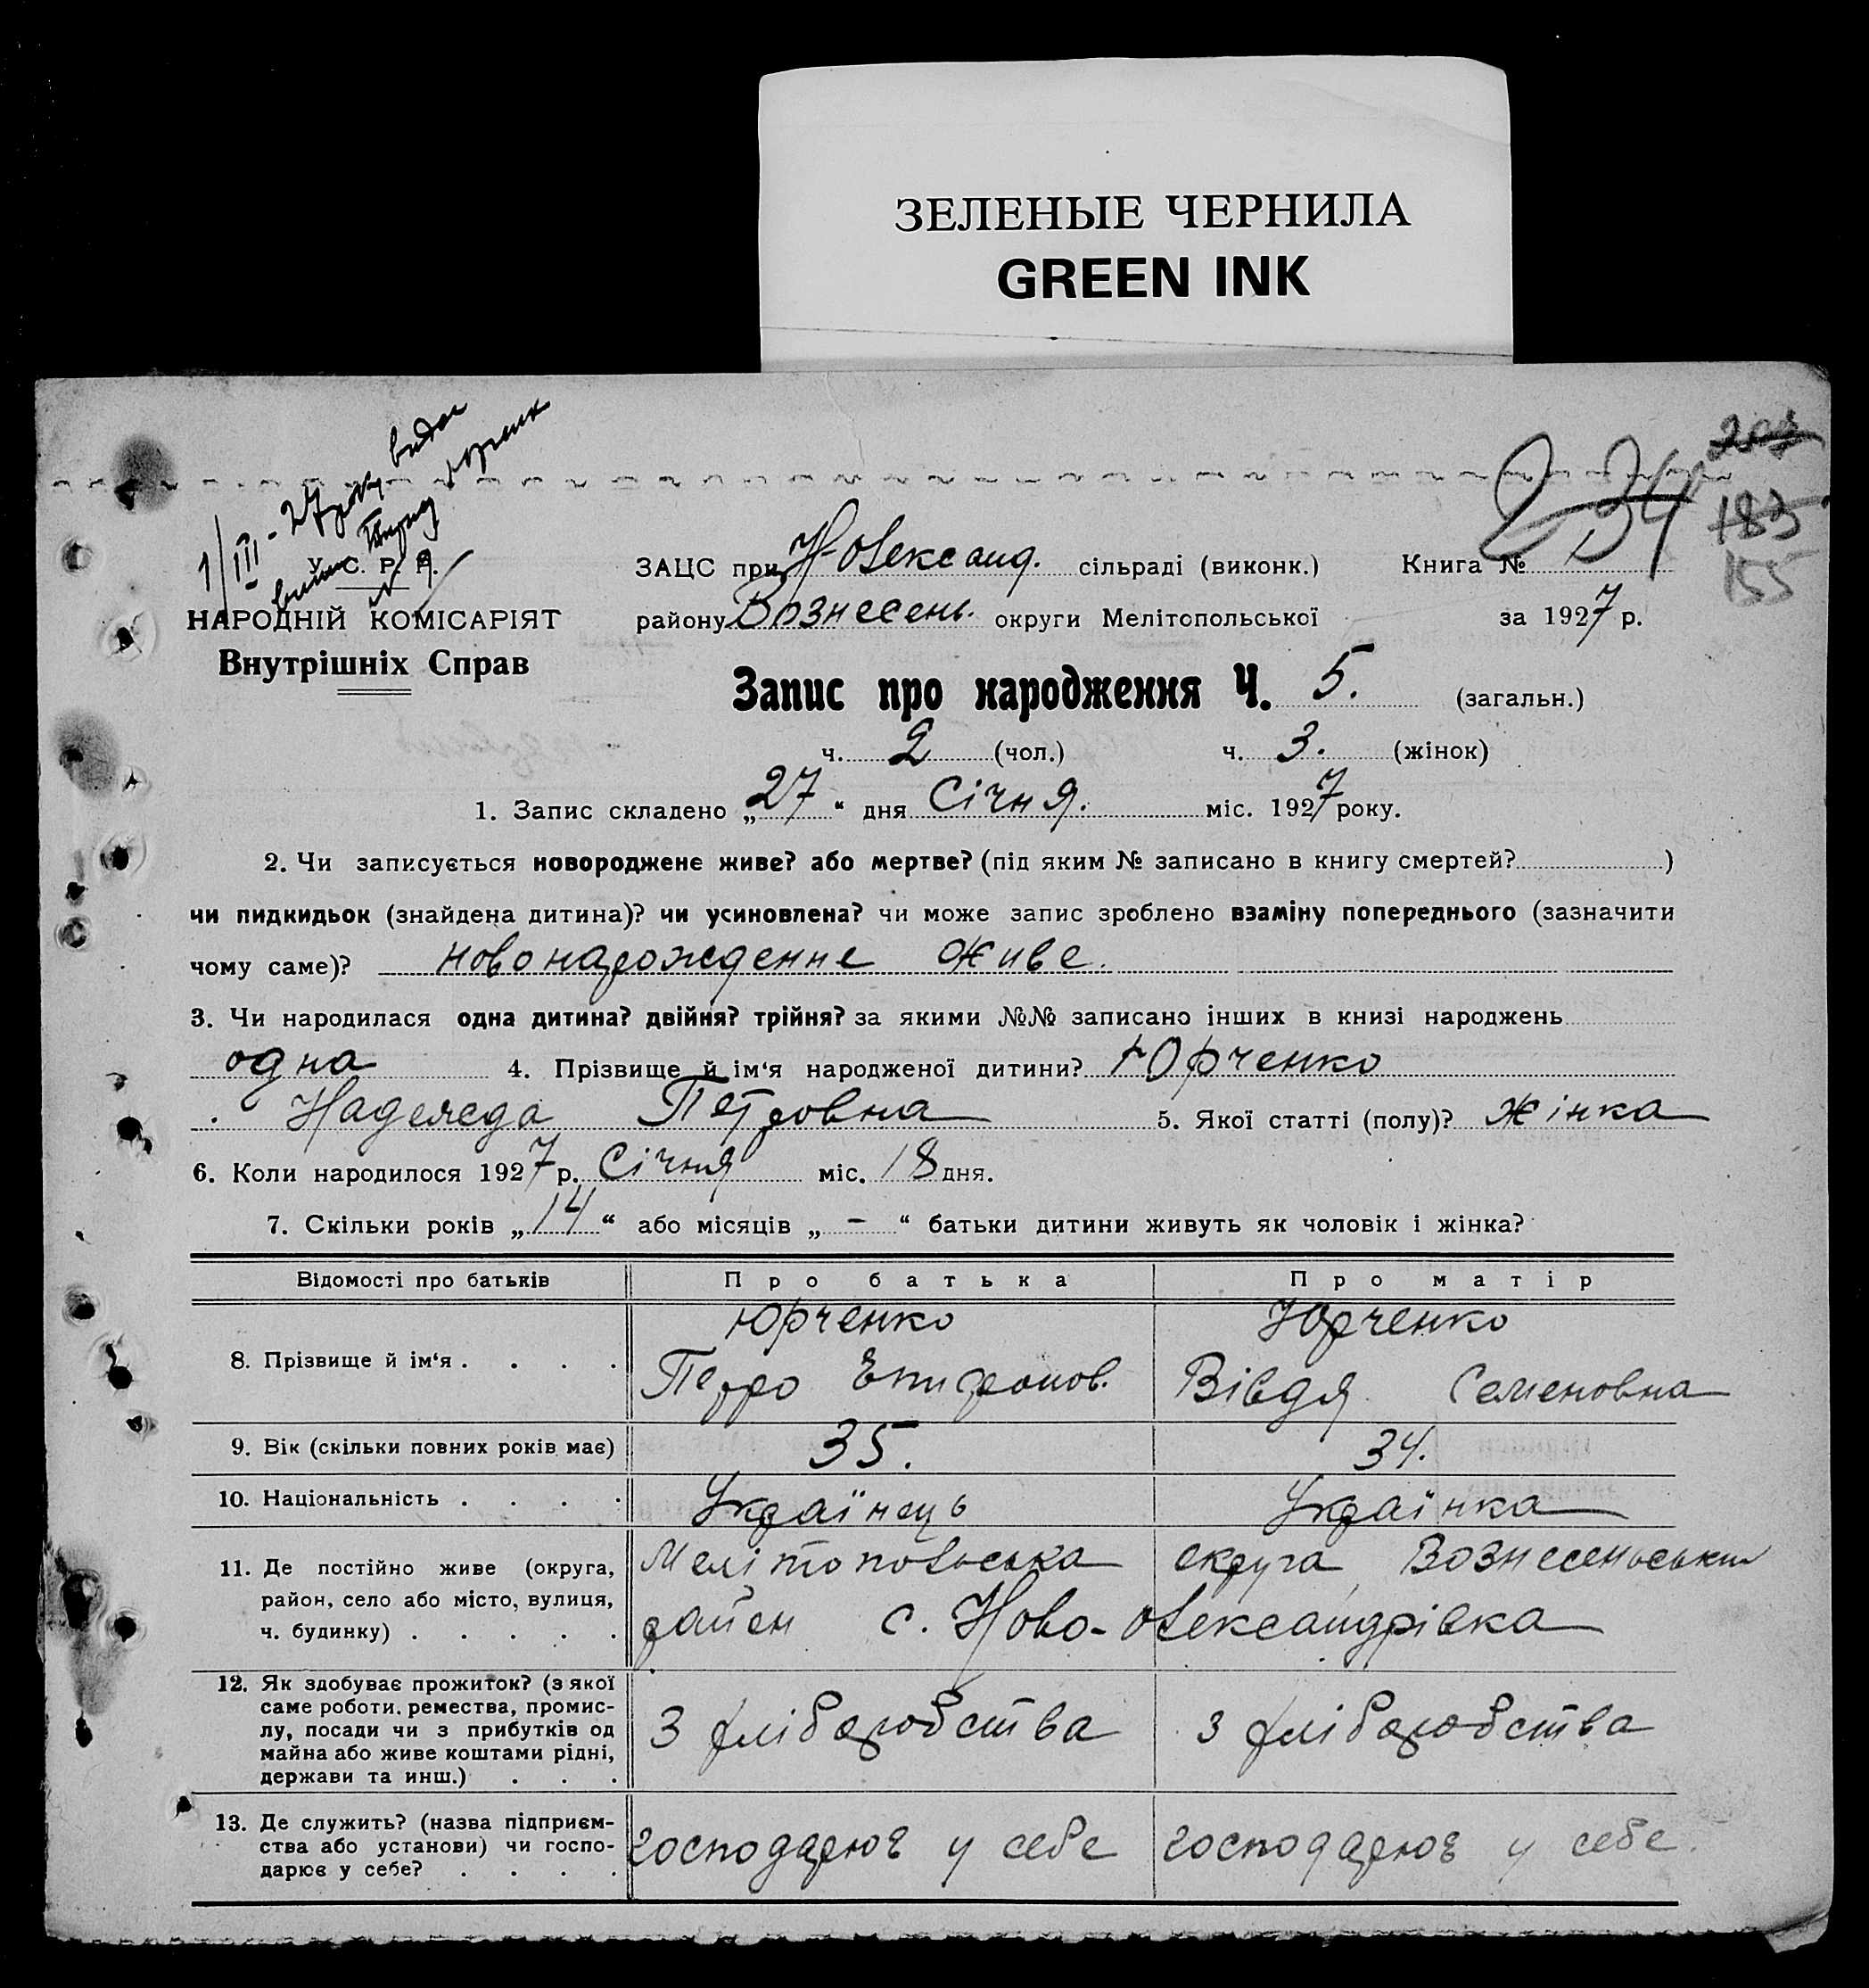 ЗЕЛЕНЫЕ ЧЕРНИЛА
GREEN INK
1/III - 27 року видан
У. С. Р. Р.
НАРОДНІЙ КОМІСАРІЯТ
Внутрішніх Справ
203
234 183
155
ЗАЦС при Н-Олександ. сільраді (виконк.) Книга №
району Вознесень. округи Мелітопольської за 1927 р.
Запис про народження Ч. 5. (загальн.)
ч. 2 (чол.) ч. 3. (жінок)
1. Запис складено „27“ дня Січня. міс. 1927 року.
2. Чи записується новороджене живе? або мертве? (під яким № записано в книгу смертей? )
чи пидкидьок (знайдена дитина)? чи усиновлена? чи може запис зроблено взаміну попереднього (зазначити
чому саме)? новонарожденне живе.
3. Чи народилася одна дитина? двійня? трійня? за якими №№ записано інших в книзі народжень
одна 4. Прізвище й ім‘я народженої дитини? Юрченко
Надежда Петровна 5. Якої статті (полу)? жінка
6. Коли народилося 1927 р. Січня міс. 18 дня.
7. Скільки років „14“ або місяців „ – “ батьки дитини живуть як чоловік і жінка?
Відомості про батьків Про батька Про матір
8. Прізвище й ім‘я . . . . Юрченко Юрченко
Петро Епифонов. Вівдя Семеновна
9. Вік (скільки повних років має) 35. 34.
10. Національність . . . . Українець Українка
11. Де постійно живе (округа, Мелітопольська округа Вознесенський
район, село або місто, вулиця, район с. Ново-Олександрівка
ч. будинку) . . . . .
12. Як здобуває прожиток? (з якої
саме роботи. ремества, промис-
лу, посади чи з прибутків од З хліборобства з хліборобства
майна або живе коштами рідні,
держави та инш.) . . .
13. Де служить? (назва підприєм-
ства або установи) чи госпо- господарює у себе господарює у себе.
дарює у себе? . . . .